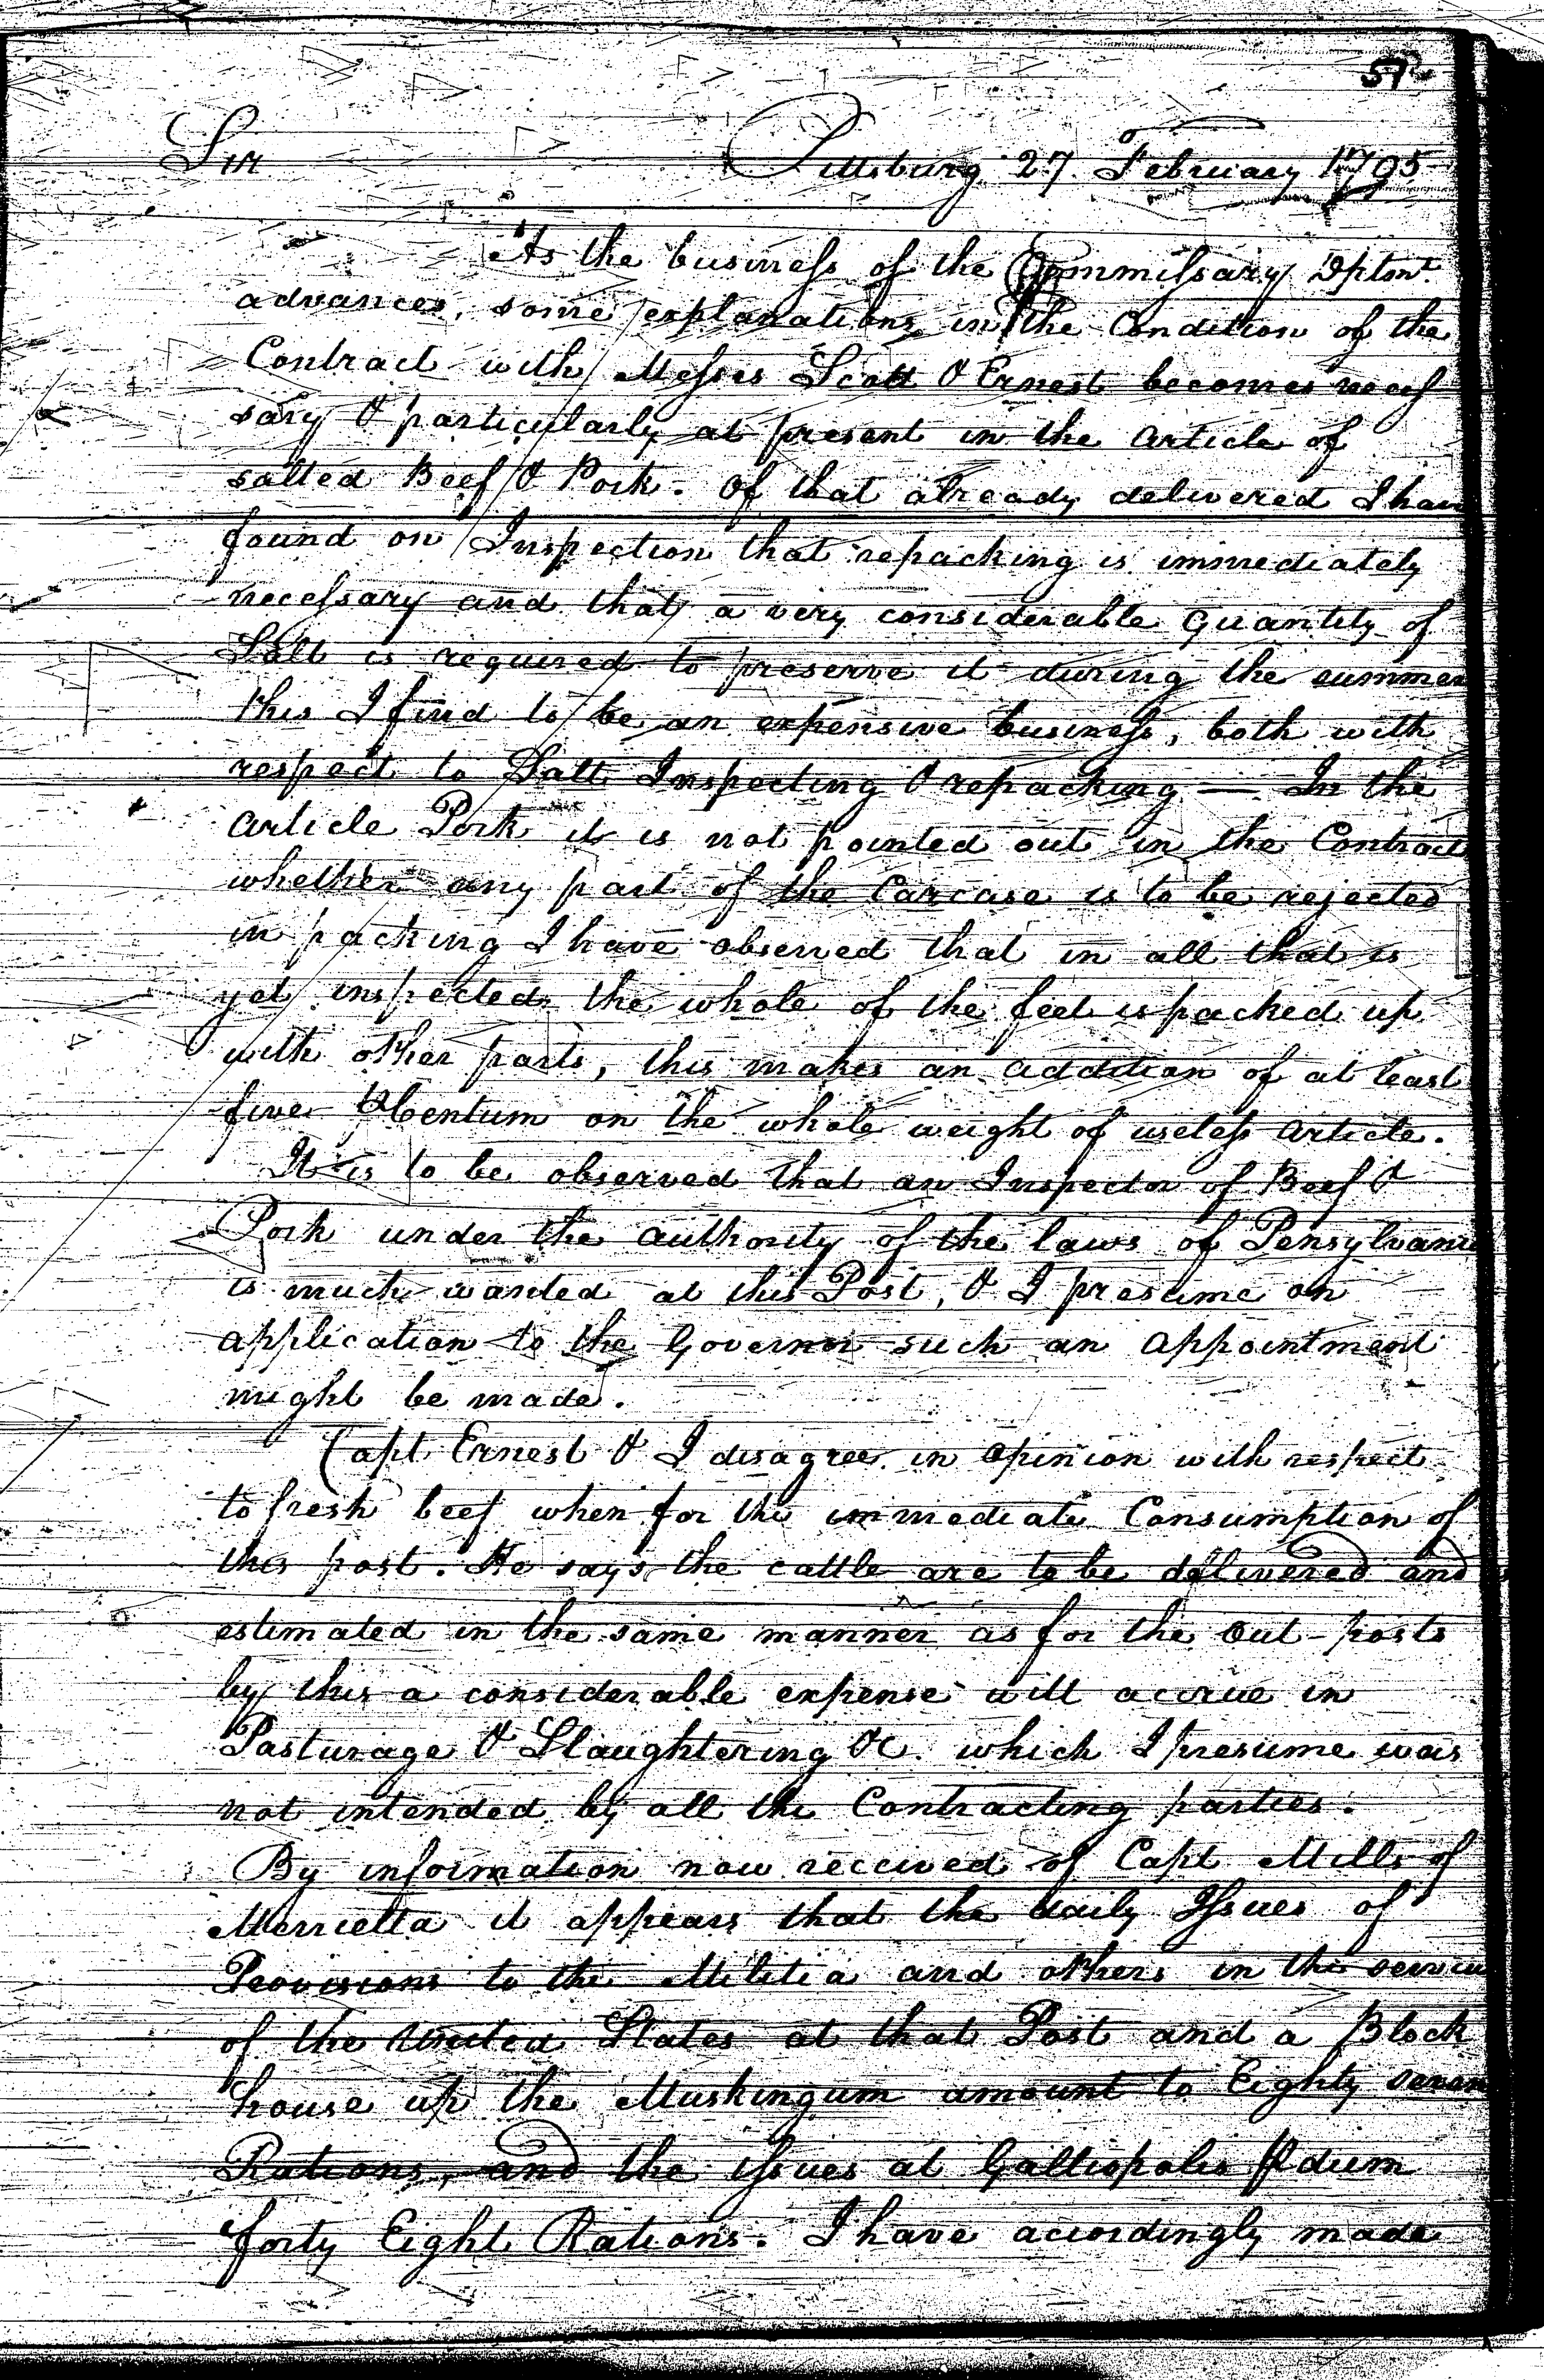 57
Sir Pittsburg 27 February 1795
As the business of the Commissary Dptmt.
advances, some explanations in the Condition of the
Contract with Messrs Scott & Ernest becomes neces
sary & particularly at present in the article of
salted Beef & Pork. Of that already delivered I have
found on Inspection that repacking is immediately
necessary and that a very considerable quantity of
Salt is required to preserve it during the summer
this I find to be an expensive business, both with
respect to Salt Inspecting & repacking — In the
article Pork it is not pointed out in the Contract
whether any part of the Carcase is to be rejected
in packing I have observed that in all that is
yet inspected the whole of the feet is packed up
with other parts, this makes an addition of at least
five ⅌ Centum on the whole weight of useless article.
It is to be observed that an Inspector of Beef &
Pork under the authority of the laws of Pensylvania
is much wanted at this Post, & I presume on
application to the Governor such an appointment
might be made.
Capt Ernest & I disagree in opinion with respect
to fresh beef when for the immediate Consumption of
this post. He says the cattle are to be delivered and
estimated in the same manner as for the out-posts
by this a considerable expense will accrue in
Pasturage & Slaughtering &c. which I presume was
not intended by all the Contracting parties.
By information now received of Capt Mills of
Merrietta it appears that the daily Issues of
Provisions to the Militia and others in the service
of the United States at that Post and a Block
house up the Muskingum amount to Eighty seven
Rations, and the issues at Galliopolis ⅌ diem
forty Eight Rations. I have accordingly made